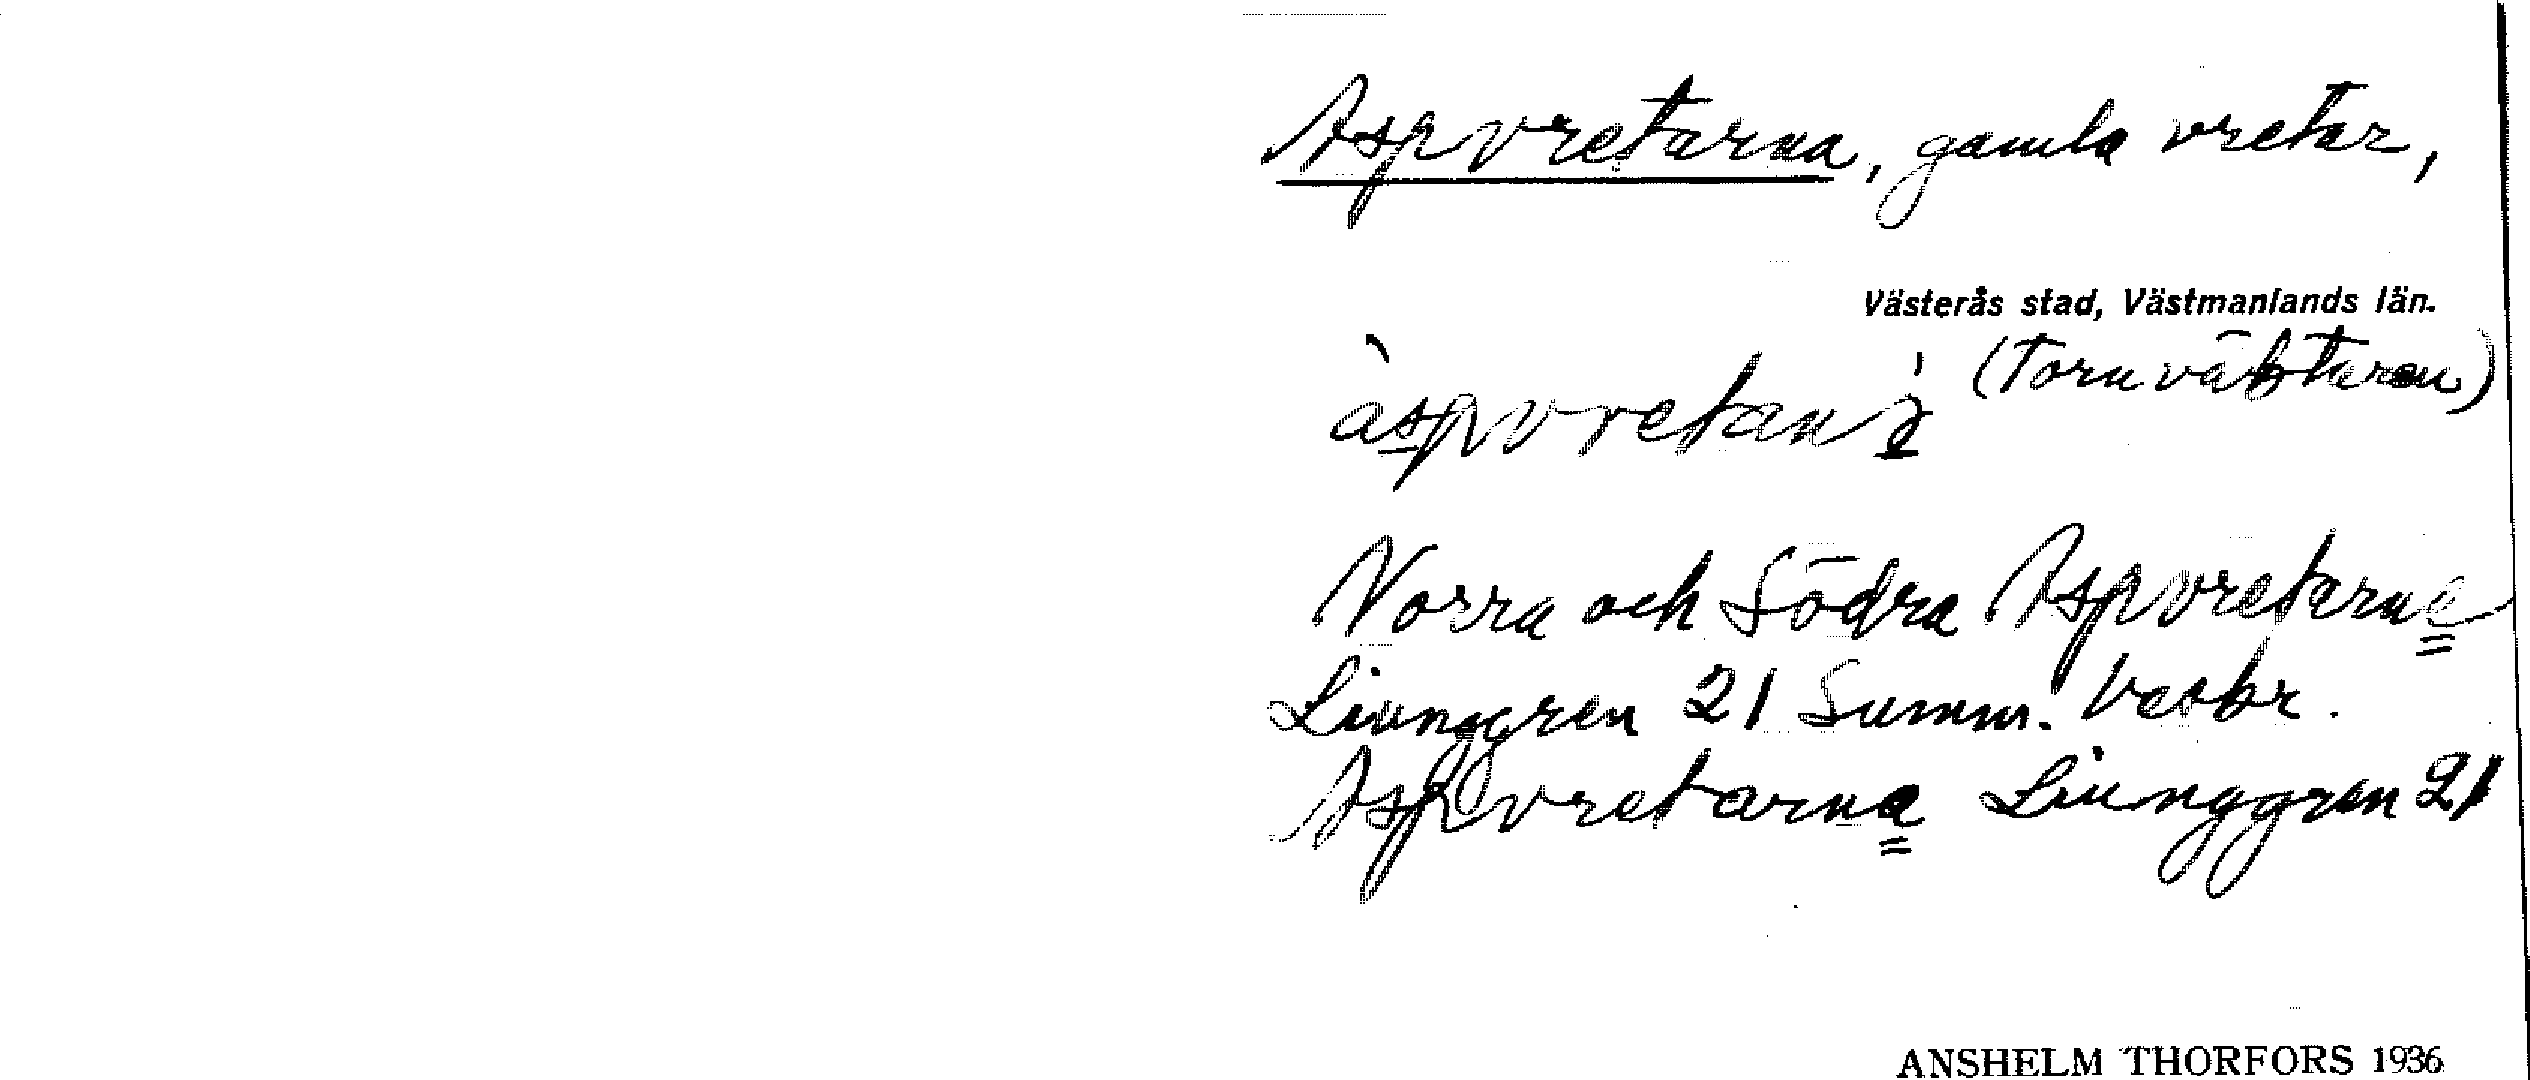 Aspvretarna, gamla vretar,
Västerås stad, Västmanlands län.
(Tornväktaren)
àspvretaṇà
Norra och Södra Aspvretarne
Liunggren 21 Summ. Beskr.
Aspvretarne Liunggren 21
ANSHELM THORFORS 1936